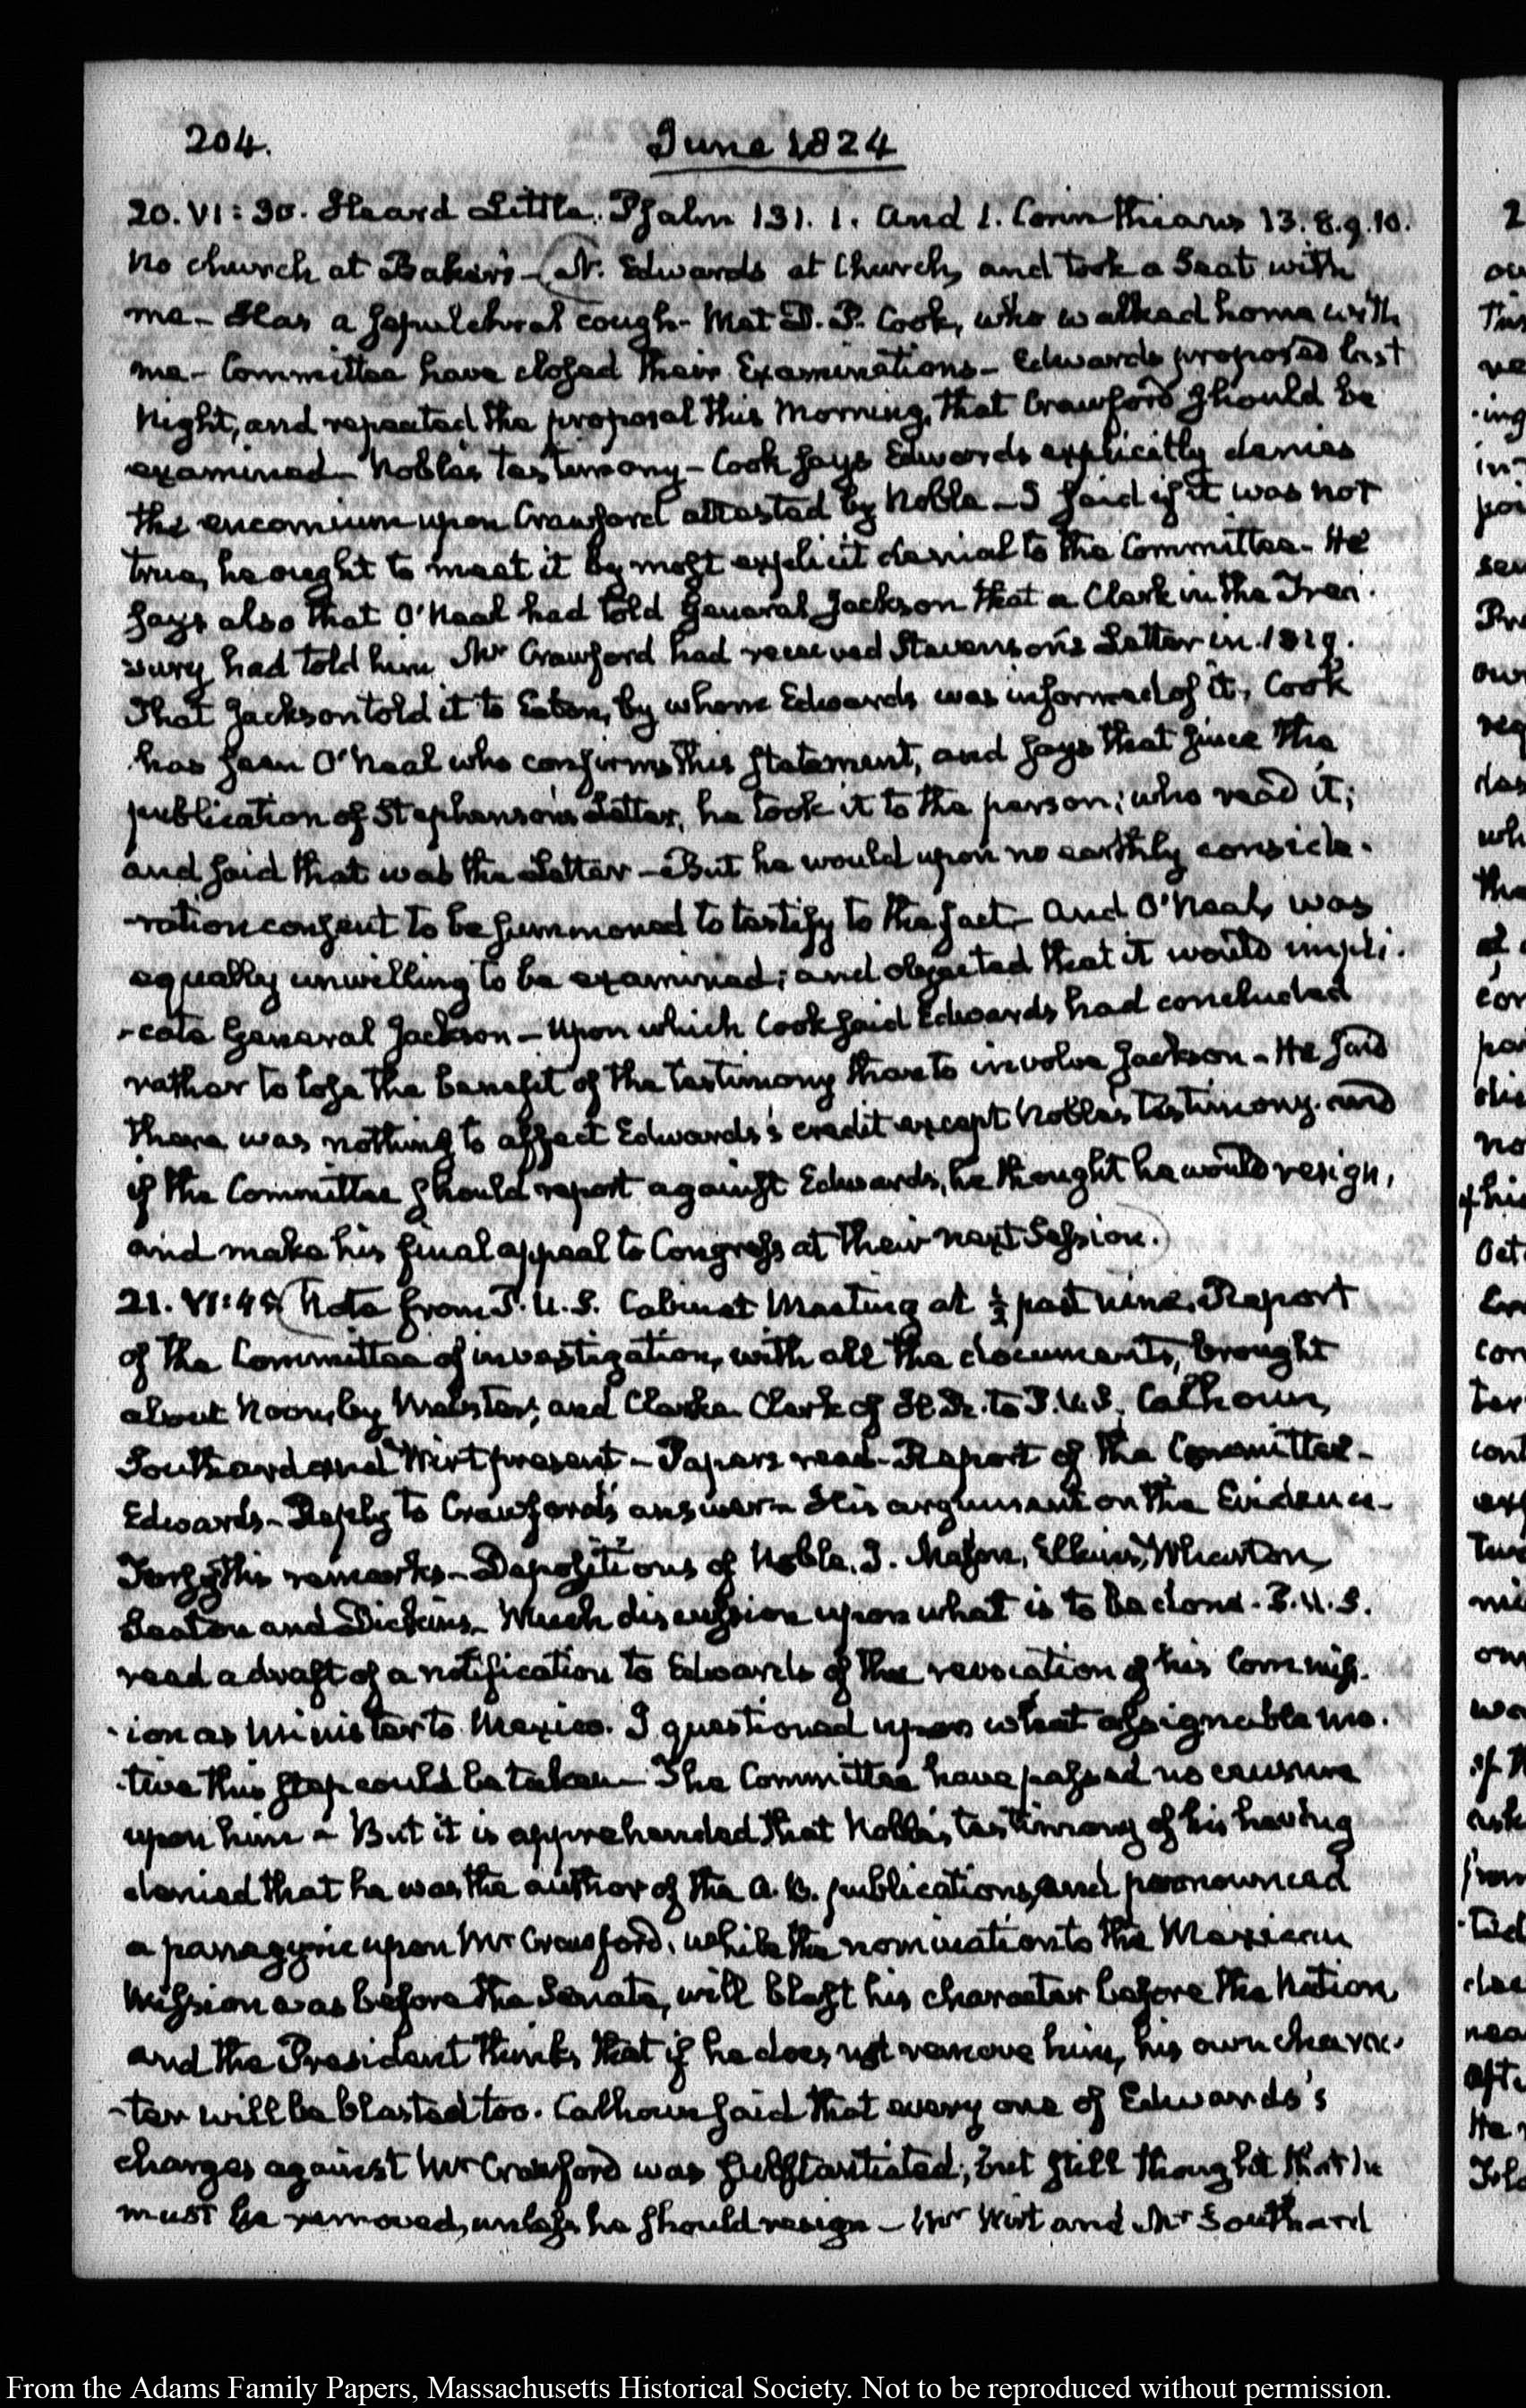 204.
June 1824
20. VI:30. Heard Little. Psalm 131. 1. and 1. Corinthians 13. 8.9.10.
No church at Baker's — (N. Edwards at Church, and took a Seat with
me — Has a sepulchral cough — Met D. P. Cook, who walked home with
me — Committee have closed their Examinations — Edwards proposed last
Night, and repeated the proposal this Morning, that Crawford should be
examined — Noble's testimony — Cook says Edwards explicitly denies
the encomium upon Crawford attested by Noble — I said if it was not
true, he ought to meet it by most explicit denial to the Committee — He
says also that O'Neal had told General Jackson that a Clerk in the Trea-
sury had told him Mr Crawford had received Stevenson's Letter in 1819.
That Jackson told it to Eaton, by whom Edwards was informed of it. Cook
has seen O'Neal who confirms this statement, and says that since the
publication of Stephenson's Letter, he took it to the person; who read it;
and said that was the Letter — But he would upon no earthly conside-
-ration consent to be summoned to testify to the fact — And O'Neal, was
equally unwilling to be examined; and objected that it would impli-
-cate General Jackson — Upon which Cook said Edwards had concluded
rather to lose the benefit of the testimony than to involve Jackson — He said
there was nothing to affect Edwards's credit except Noble's testimony. and
if the Committee should report against Edwards, he thought he would resign,
and make his final appeal to Congress at their next Session.)
21. VI:45 (Note from P.U.S. Cabinet Meeting at ½ past nine. Report
of the Committee of investigation, with all the documents, brought
about Noon, by Webster, and Clarke Clerk of H.R. to P.U.S. Calhoun,
Southard and Wirt present — Papers read — Report of the Committee —
Edwards — Reply to Crawford's answer — His argument on the Evidence —
Forsyth's remarks — Depositions of Noble, J. Mason, Elkins, Wharton,
Seaton and Dickins — Much discussion upon what is to be done. P.U.S.
read a draft of a notification to Edwards of the revocation of his Commiss-
-ion as Minister to Mexico. I questioned upon what assignable mo-
-tive this step could be taken — The Committee have passed no censure
upon him — But it is apprehended that Noble's testimony of his having
denied that he was the author of the A.B. publications, and pronounced
a panegyric upon Mr Crawford, while the nomination to the Mexican
Mission was before the Senate, will blast his character before the Nation,
and the President thinks that if he does not remove him, his own charac-
-ter will be blasted too. Calhoun said that every one of Edwards's
charges against Mr Crawford was substantiated; but still thought that he
must be removed, unless he should resign — Mr Wirt and Mr Southard
From the Adams Family Papers, Massachusetts Historical Society. Not to be reproduced without permission.